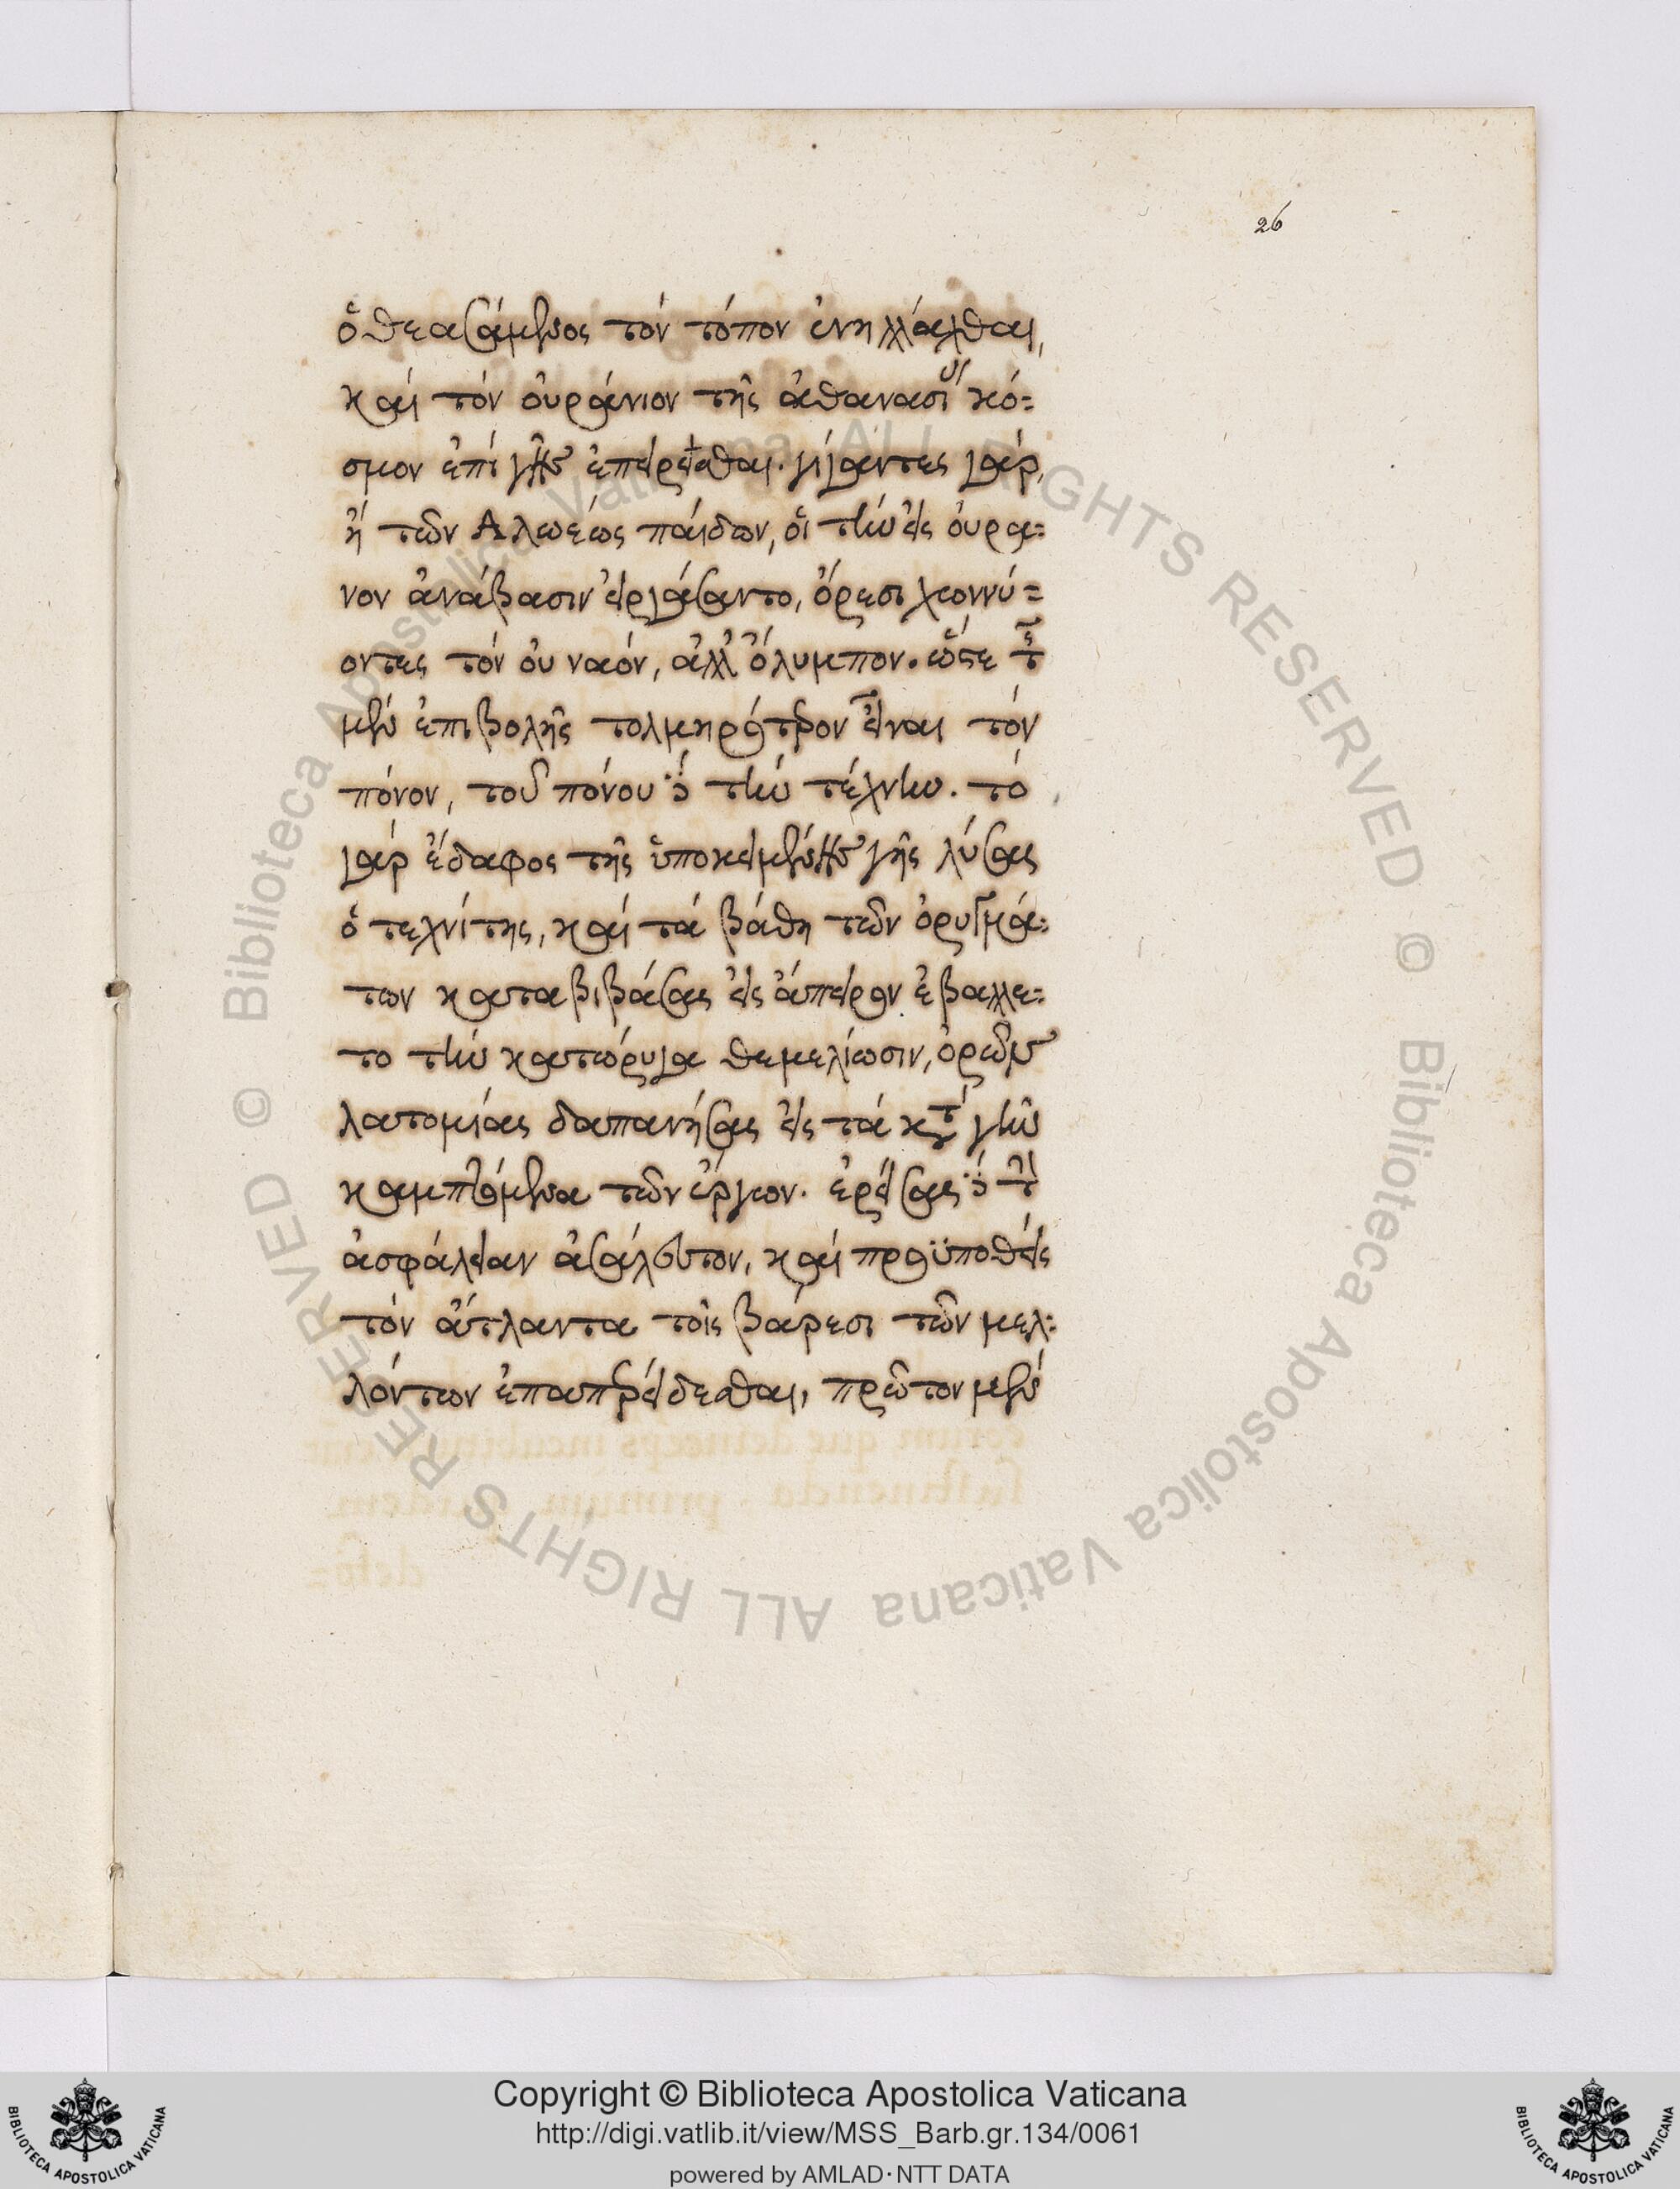 26
ὁ θεασάμενος τὸν τόπον ἐνηλλάχθαι,
καὶ τὸν οὐράνιον τῆς ἀθανασί κό=
σμον ἐπὶ γῆς ἐπερεῖσθαι. γίγαντες γάρ,
ἢ τῶν Αλωέως παίδων, οἳ τὴν εἰς οὐρα=
νον ἀνάβασιν εἰργάσαντο, ὄρεσι χωννύ=
οντες τὸν οὐ ναόν, ἀλλ' ὄλυμπον. ὥστε τῆς
μὲν ἐπιβολῆς τολμηρότερον εἶναι τὸν
πόνον, τοῦ πόνου δὲ τὴν τέχνην. τὸ
γὰρ ἔδαφος τῆς ὑποκειμένης γῆς λύσας
ὁ τεχνίτης, καὶ τὰ βάθη τῶν ὀρυγμά=
των καταβιβάσας εἰς ἄπειρον ἐβαλλε=
το τὴν κατώρυγα θεμελίωσιν, ὀρῶν
λατομίας δαπανήσας εἰς τὰ κατὰ γῆν
καμπτόμενα τῶν ἔργων. ἐρείσας δὲ τὴν
ἀσφάλειαν ἀσάλευτον, καὶ προϋποθεὶς
τὸν ἄτλαντα τοῖς βάρεσι τῶν μελ=
λόντων ἐπαπερείδεσθαι, πρῶτον μὲν
Copyright © Biblioteca Apostolica Vaticana
http://digi.vatlib.it/view/MSS_Barb.gr.134/0061
powered by AMLAD·NTT DATA
BIBLIOTECA APOSTOLICA VATICANA
BIBLIOTECA APOSTOLICA VATICANA
© Biblioteca Apostolica Vaticana ALL RIGHTS RESERVED © Biblioteca Apostolica Vaticana ALL RIGHTS RESERVED